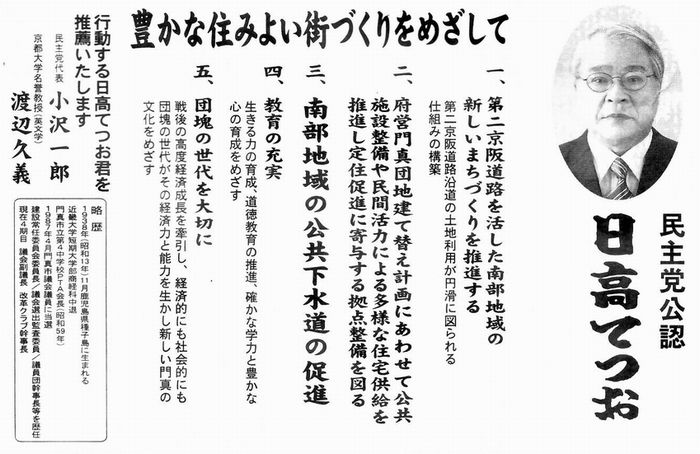 民主党公認
日高てつお
豊かな住みよい街づくりをめざして
一、第二京阪道路を活した南部地域の
新しいまちづくりを推進する
第二京阪道路沿道の土地利用が円滑に図られる
仕組みの構築
二、府営門真団地建て替え計画にあわせて公共
施設整備や民間活力による多様な住宅供給を
推進し定住促進に寄与する拠点整備を図る
三、南部地域の公共下水道の促進
四、教育の充実
生きる力の育成、道徳教育の推進、確かな学力と豊かな
心の育成をめざす
五、団塊の世代を大切に
戦後の高度経済成長を牽引し、経済的にも社会的にも
団塊の世代がその経済力と能力を生かし新しい門真の
文化をめざす
行動する日高てつお君を
推薦いたします
民主党代表 小沢一郎
京都大学名誉教授(英文学) 渡辺久義
略歴
1938年(昭和13年)11月鹿児島県種子島に生まれる
近畿大学短期大学部商経科中退
門真市立第4中学校PTA会長(昭和59年)
1987年4月門真市議会議員に当選
建設常任委員会委員長/議会選出監査委員/議員団幹事長等を歴任
現在4期目 議会副議長 改革クラブ幹事長